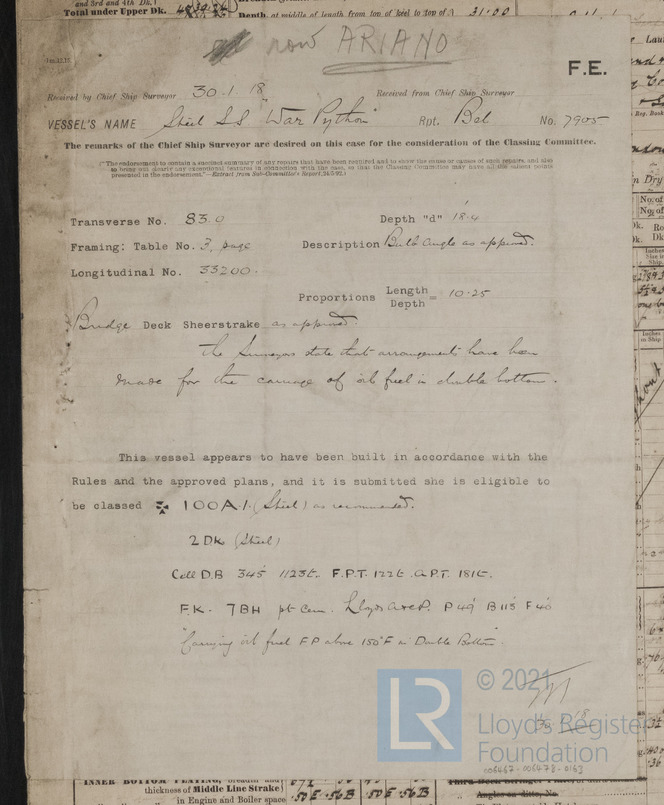 and 3rd and 4th Dk.)
Total under Upper Dk.
Depth, at middle of length from top of keel to top of 31·00
now ARIANO
F.E.
Received by Chief Ship Surveyor 30·1·18 Received from Chief Ship Surveyor
VESSEL'S NAME Steel S.S. "War Python" Rpt. Bel No. 7905
The remarks of the Chief Ship Surveyor are desired on this case for the consideration of the Classing Committee.
("The endorsement to contain a succinct summary of any repairs that have been required and to show the cause or causes of such repairs, and also
to bring out clearly any exceptional features in connection with the case, so that the Classing Committee may have all the salient points
presented in the endorsement."—Extract from Sub-Committee's Report, 24/5/92.)
Transverse No. 83.0 Depth "d" 18.4
Framing: Table No. 3, page Description Bulb angle as approved.
Longitudinal No. 33200.
Proportions Length
Depth = 10·25
Bridge Deck Sheerstrake as approved.
The Surveyors state that arrangements have been
made for the carriage of oil fuel in double bottom.
This vessel appears to have been built in accordance with the
Rules and the approved plans, and it is submitted she is eligible to
be classed ✠ 100A·1· (Steel) as recommended.
2 Dk (Steel)
Cell D.B 345' 1123t. F.P.T. 122t. A.P.T. 181t.
F.K. 7BH pt Cem. Lloyds A&CP. P 49' B 115' F 40'
"Carrying oil fuel F.P. above 150°F in Double Bottom".
© 2021
LR
Lloyd's Register
Foundation
006467-006478-0163
INNER BOTTOM PLATING, breadth and
thickness of Middle Line Strake
in Engine and Boiler space ·50 E ·56 B ·50 E ·56 B
Angles on ditto, No.